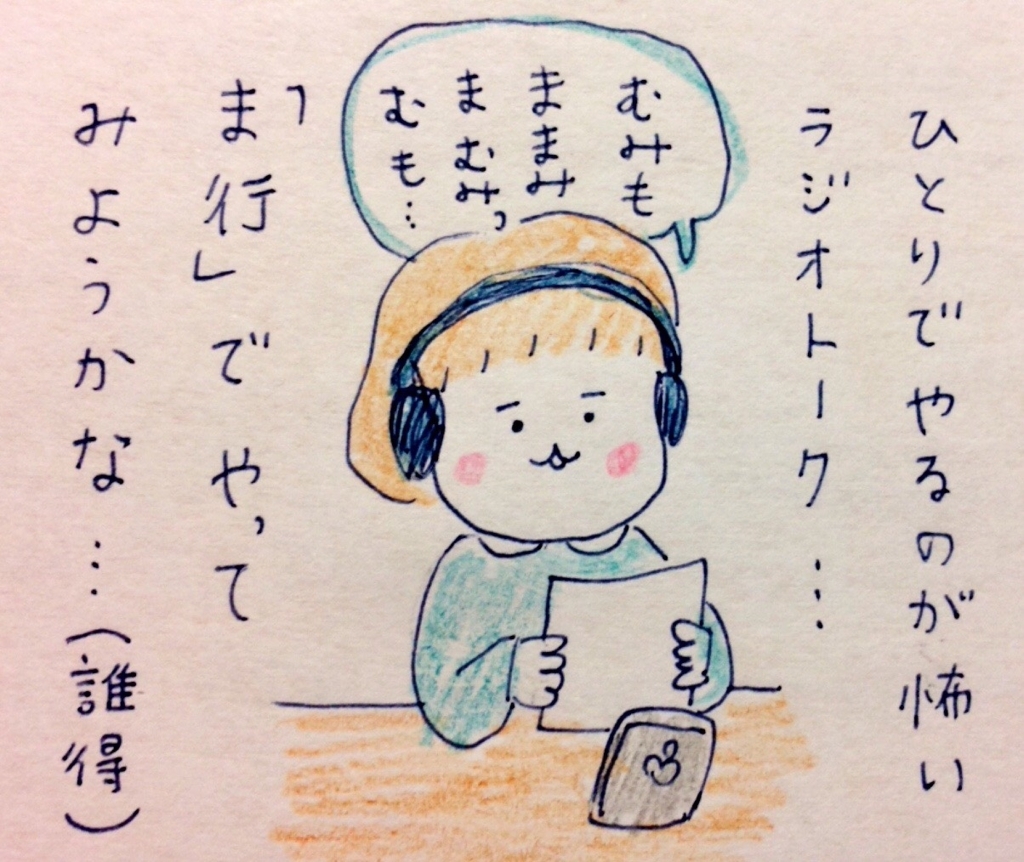 ひとりでやるのが怖い
ラジオトーク…
むみも
ままみ
まむみっ
むも…
「ま行」でやって
みようかな…(誰得)